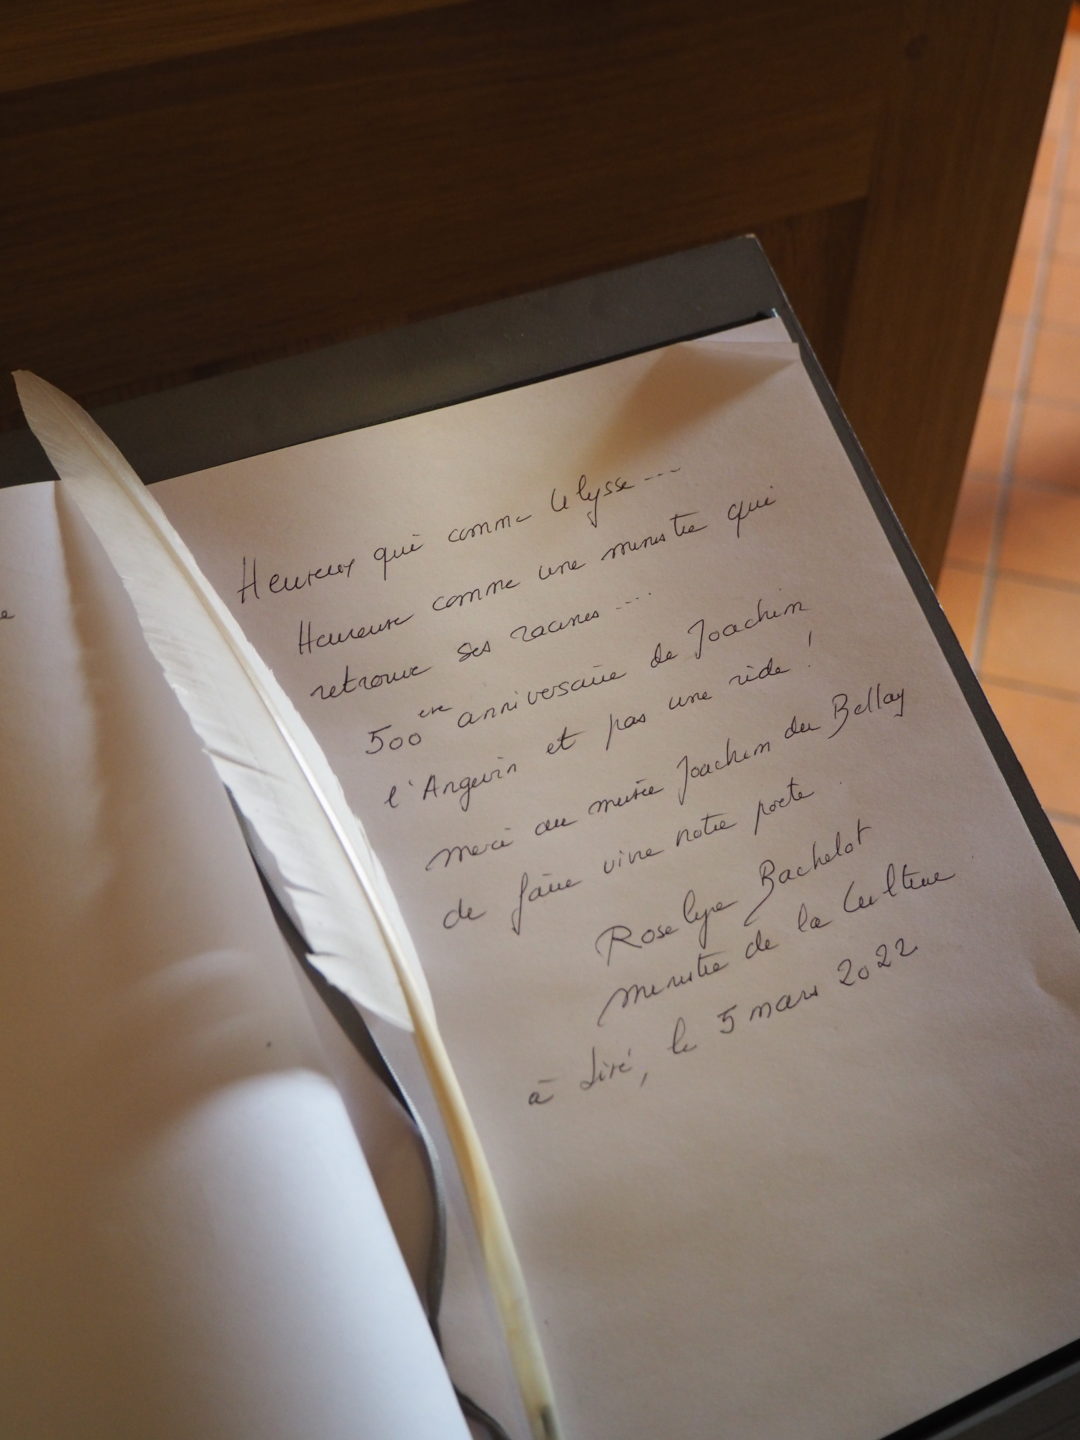 Heureux qui comme Ulysse ...
Heureuse comme une ministre qui
retrouve ses racines ....
500ère anniversaire de Joachim
l'Angevin et pas une ride !
merci au musée Joachim du Bellay
de faire vivre notre poete
Roselyne Bachelot
ministre de la Culture
à Liré, le 5 mars 2022